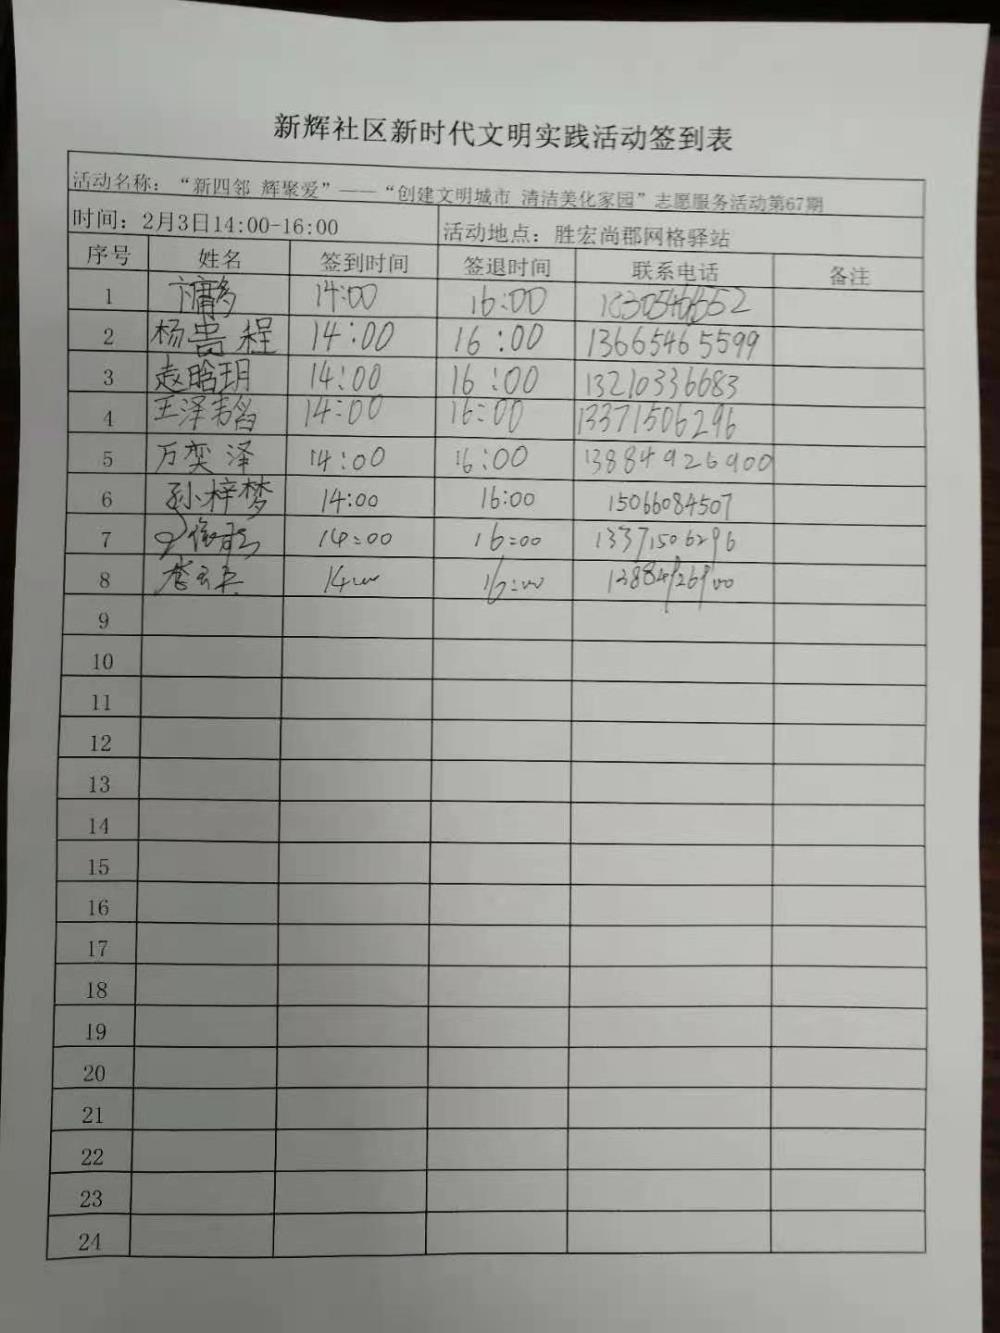 新辉社区新时代文明实践活动签到表
活动名称：“新四邻 辉聚爱”——“创建文明城市 清洁美化家园”志愿服务活动第67期
时间：2月3日14:00-16:00 活动地点：胜宏尚郡网格驿站
序号 姓名 签到时间 签退时间 联系电话 备注
1 14:00 16:00
2 杨贵程 14:00 16:00 13665465599
3 赵晗玥 14:00 16:00 13210336683
4 王泽 14:00 16:00 13371506296
5 万奕泽 14:00 16:00 13884926900
6 孙梓梦 14:00 16:00 15066084507
7 14:00 16:00 13371506296
8 14:00 16:00 13884926900
9
10
11
12
13
14
15
16
17
18
19
20
21
22
23
24